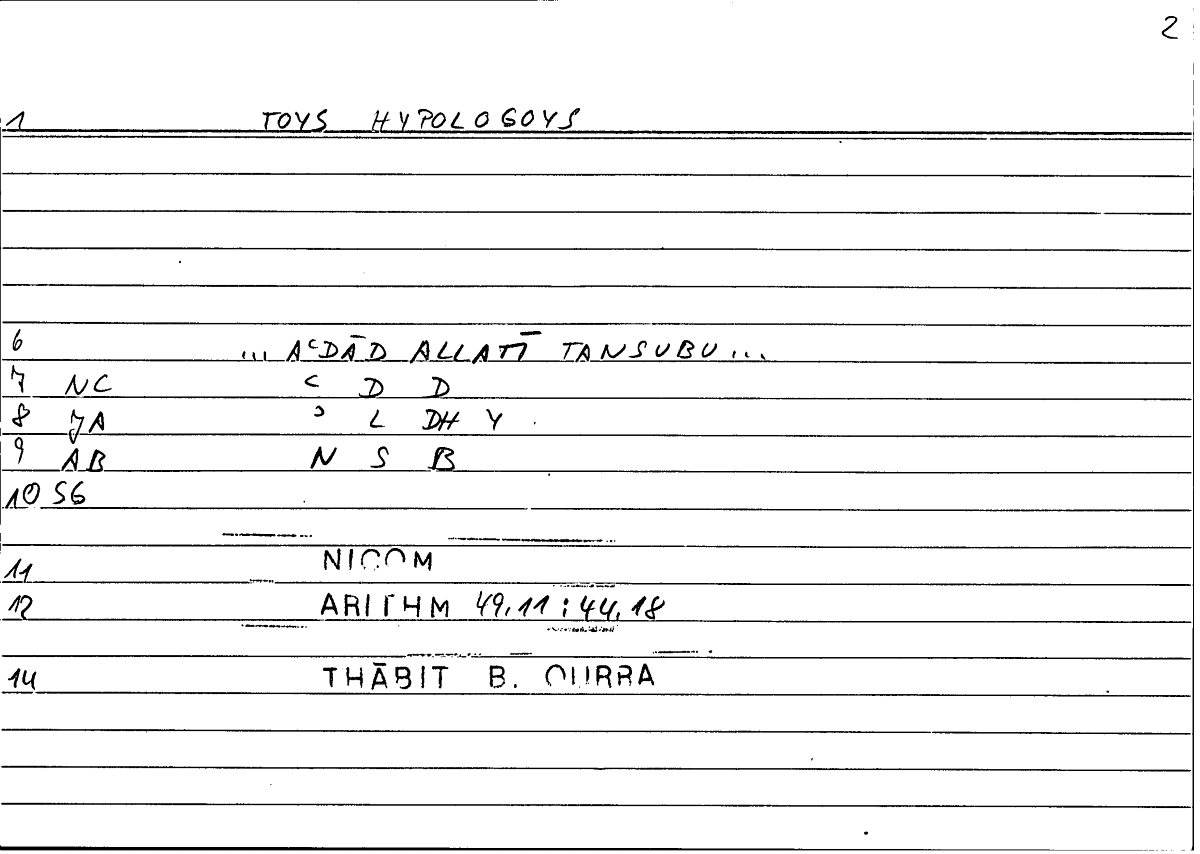 2
1 TOYS HYPOLOGOYS
6 ... AʿDĀD ALLATĪ TANSUBU ...
7 NC ʿ D D
8 JA ʾ L DH Y
9 AB N S B
10 SG
11 NICOM
12 ARITHM 49,11 : 44,18
14 THĀBIT B. QURRA